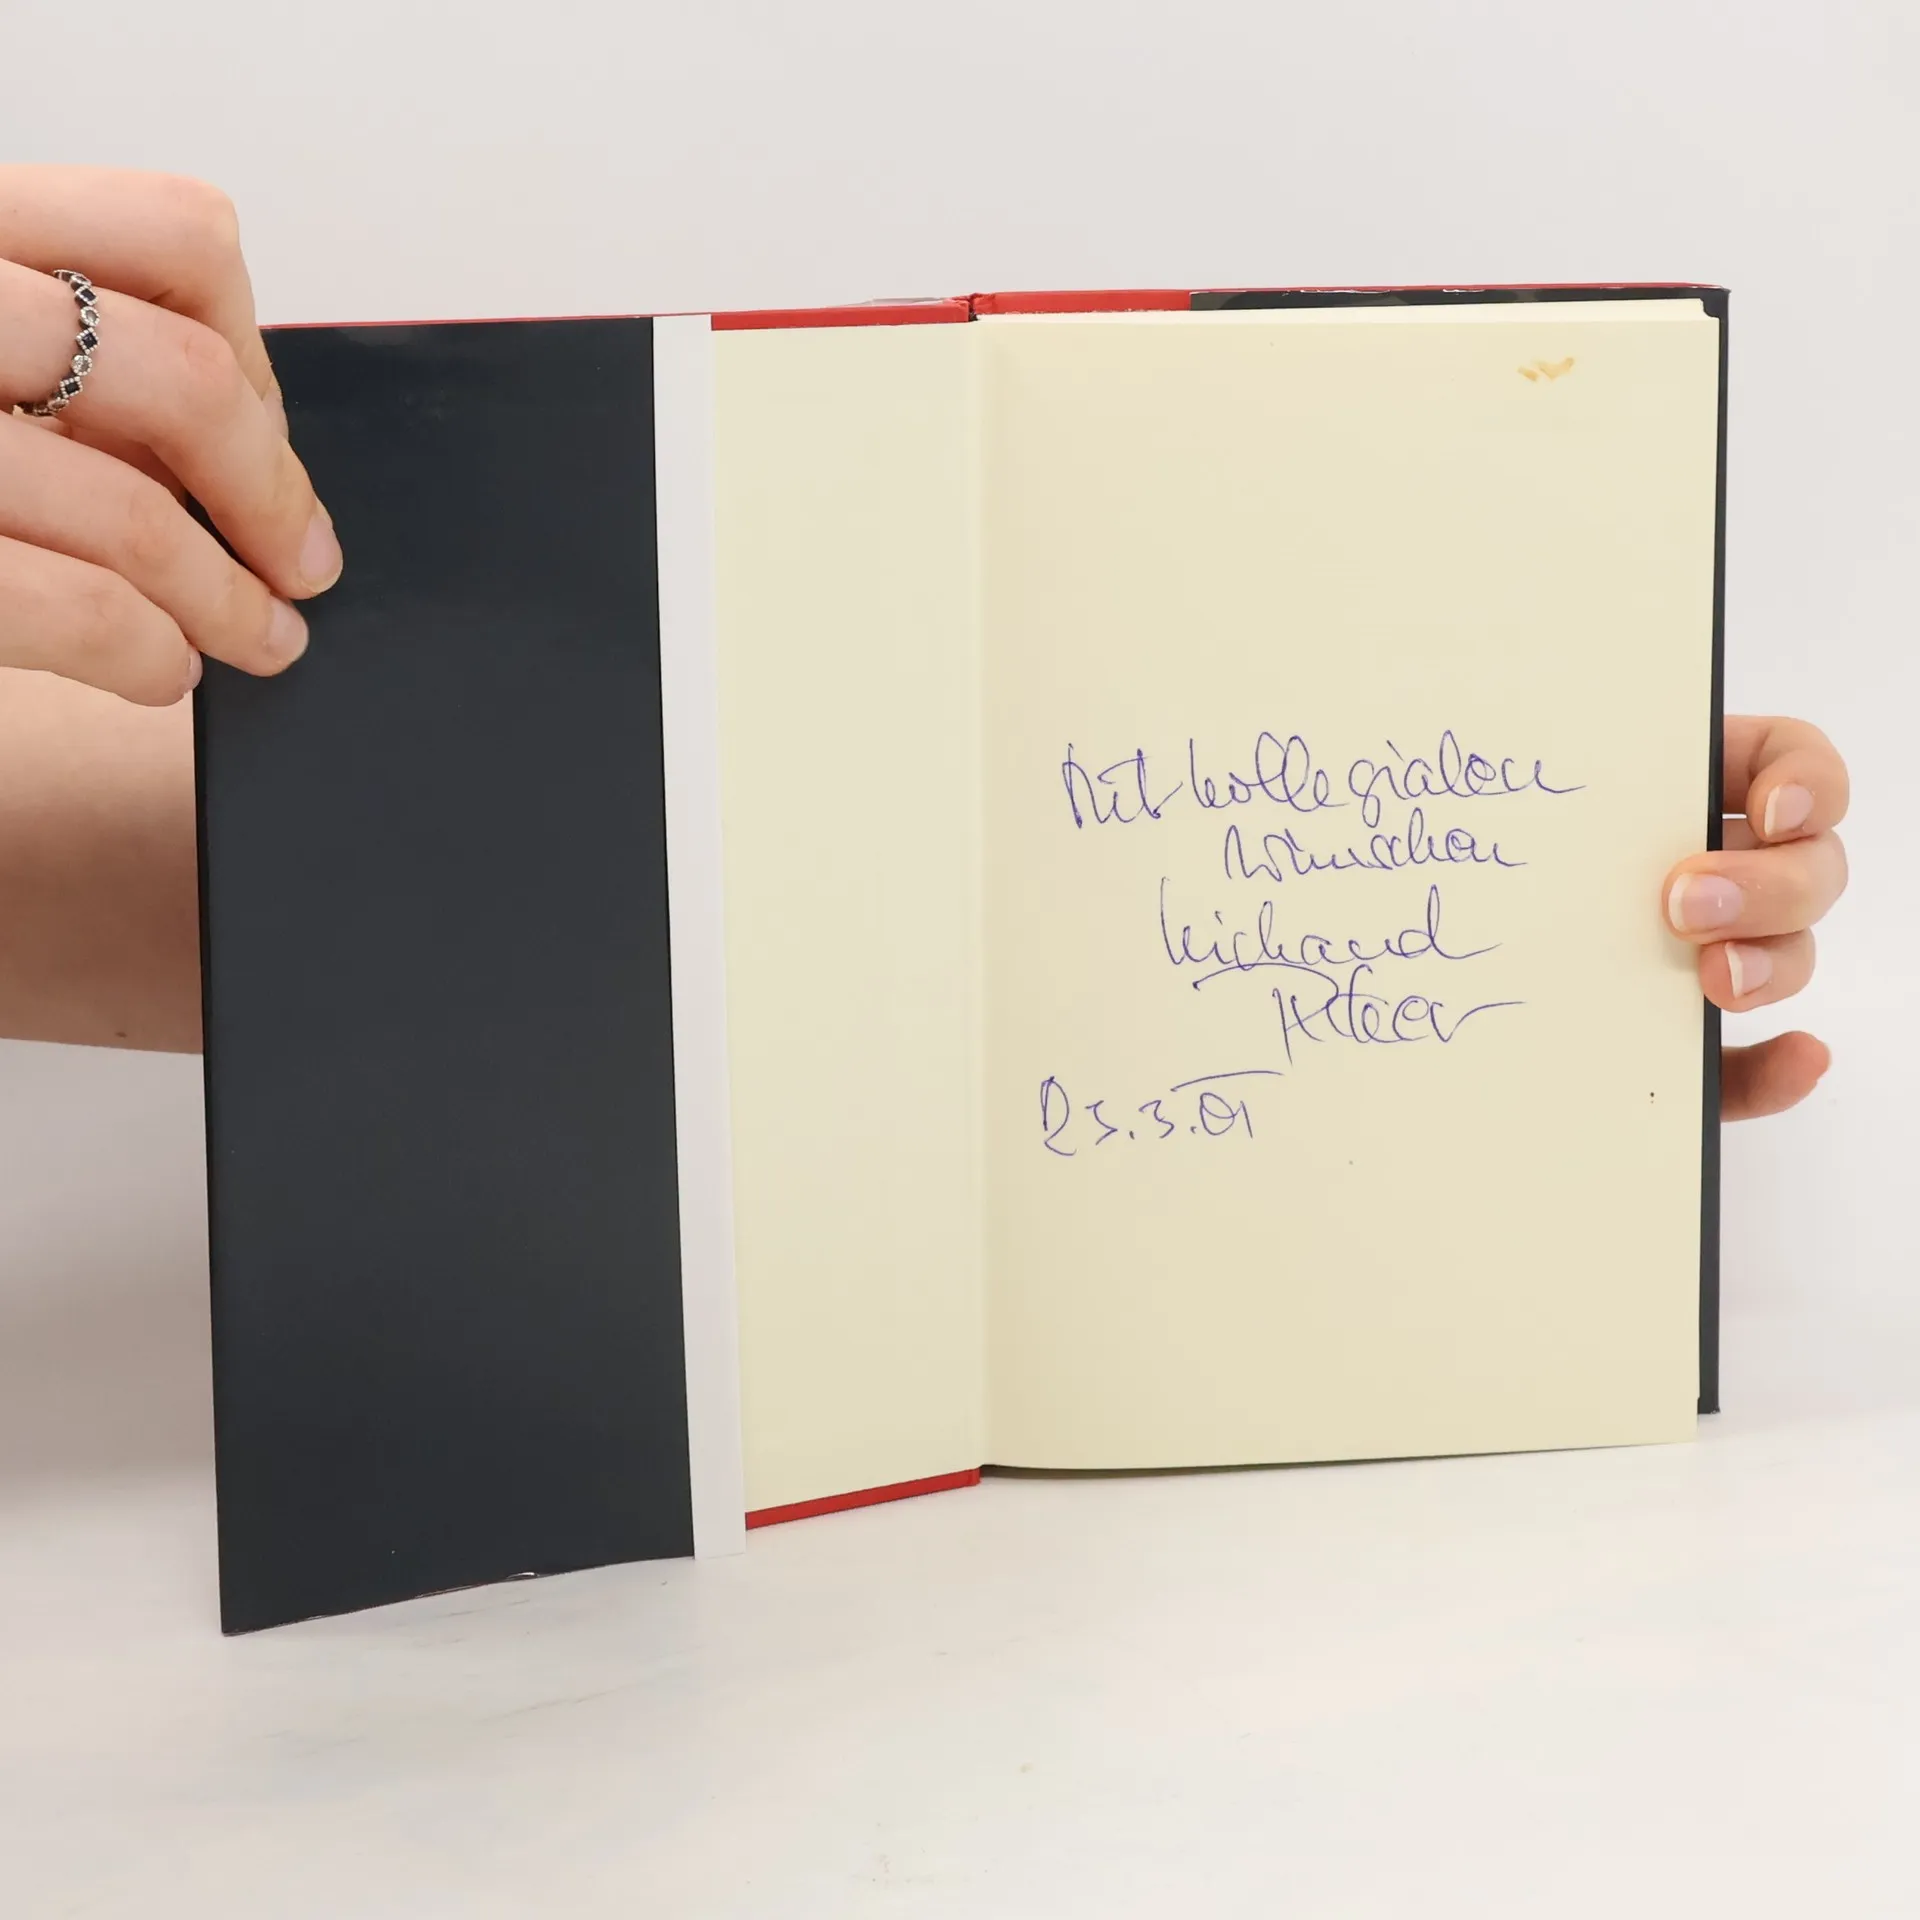 Mit kollegialen
Wünschen
Richard
23.3.01